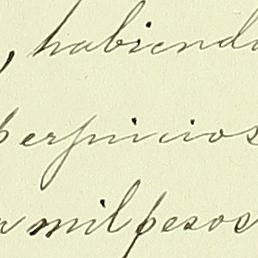 , habiendo
perjuicios
mil pesos